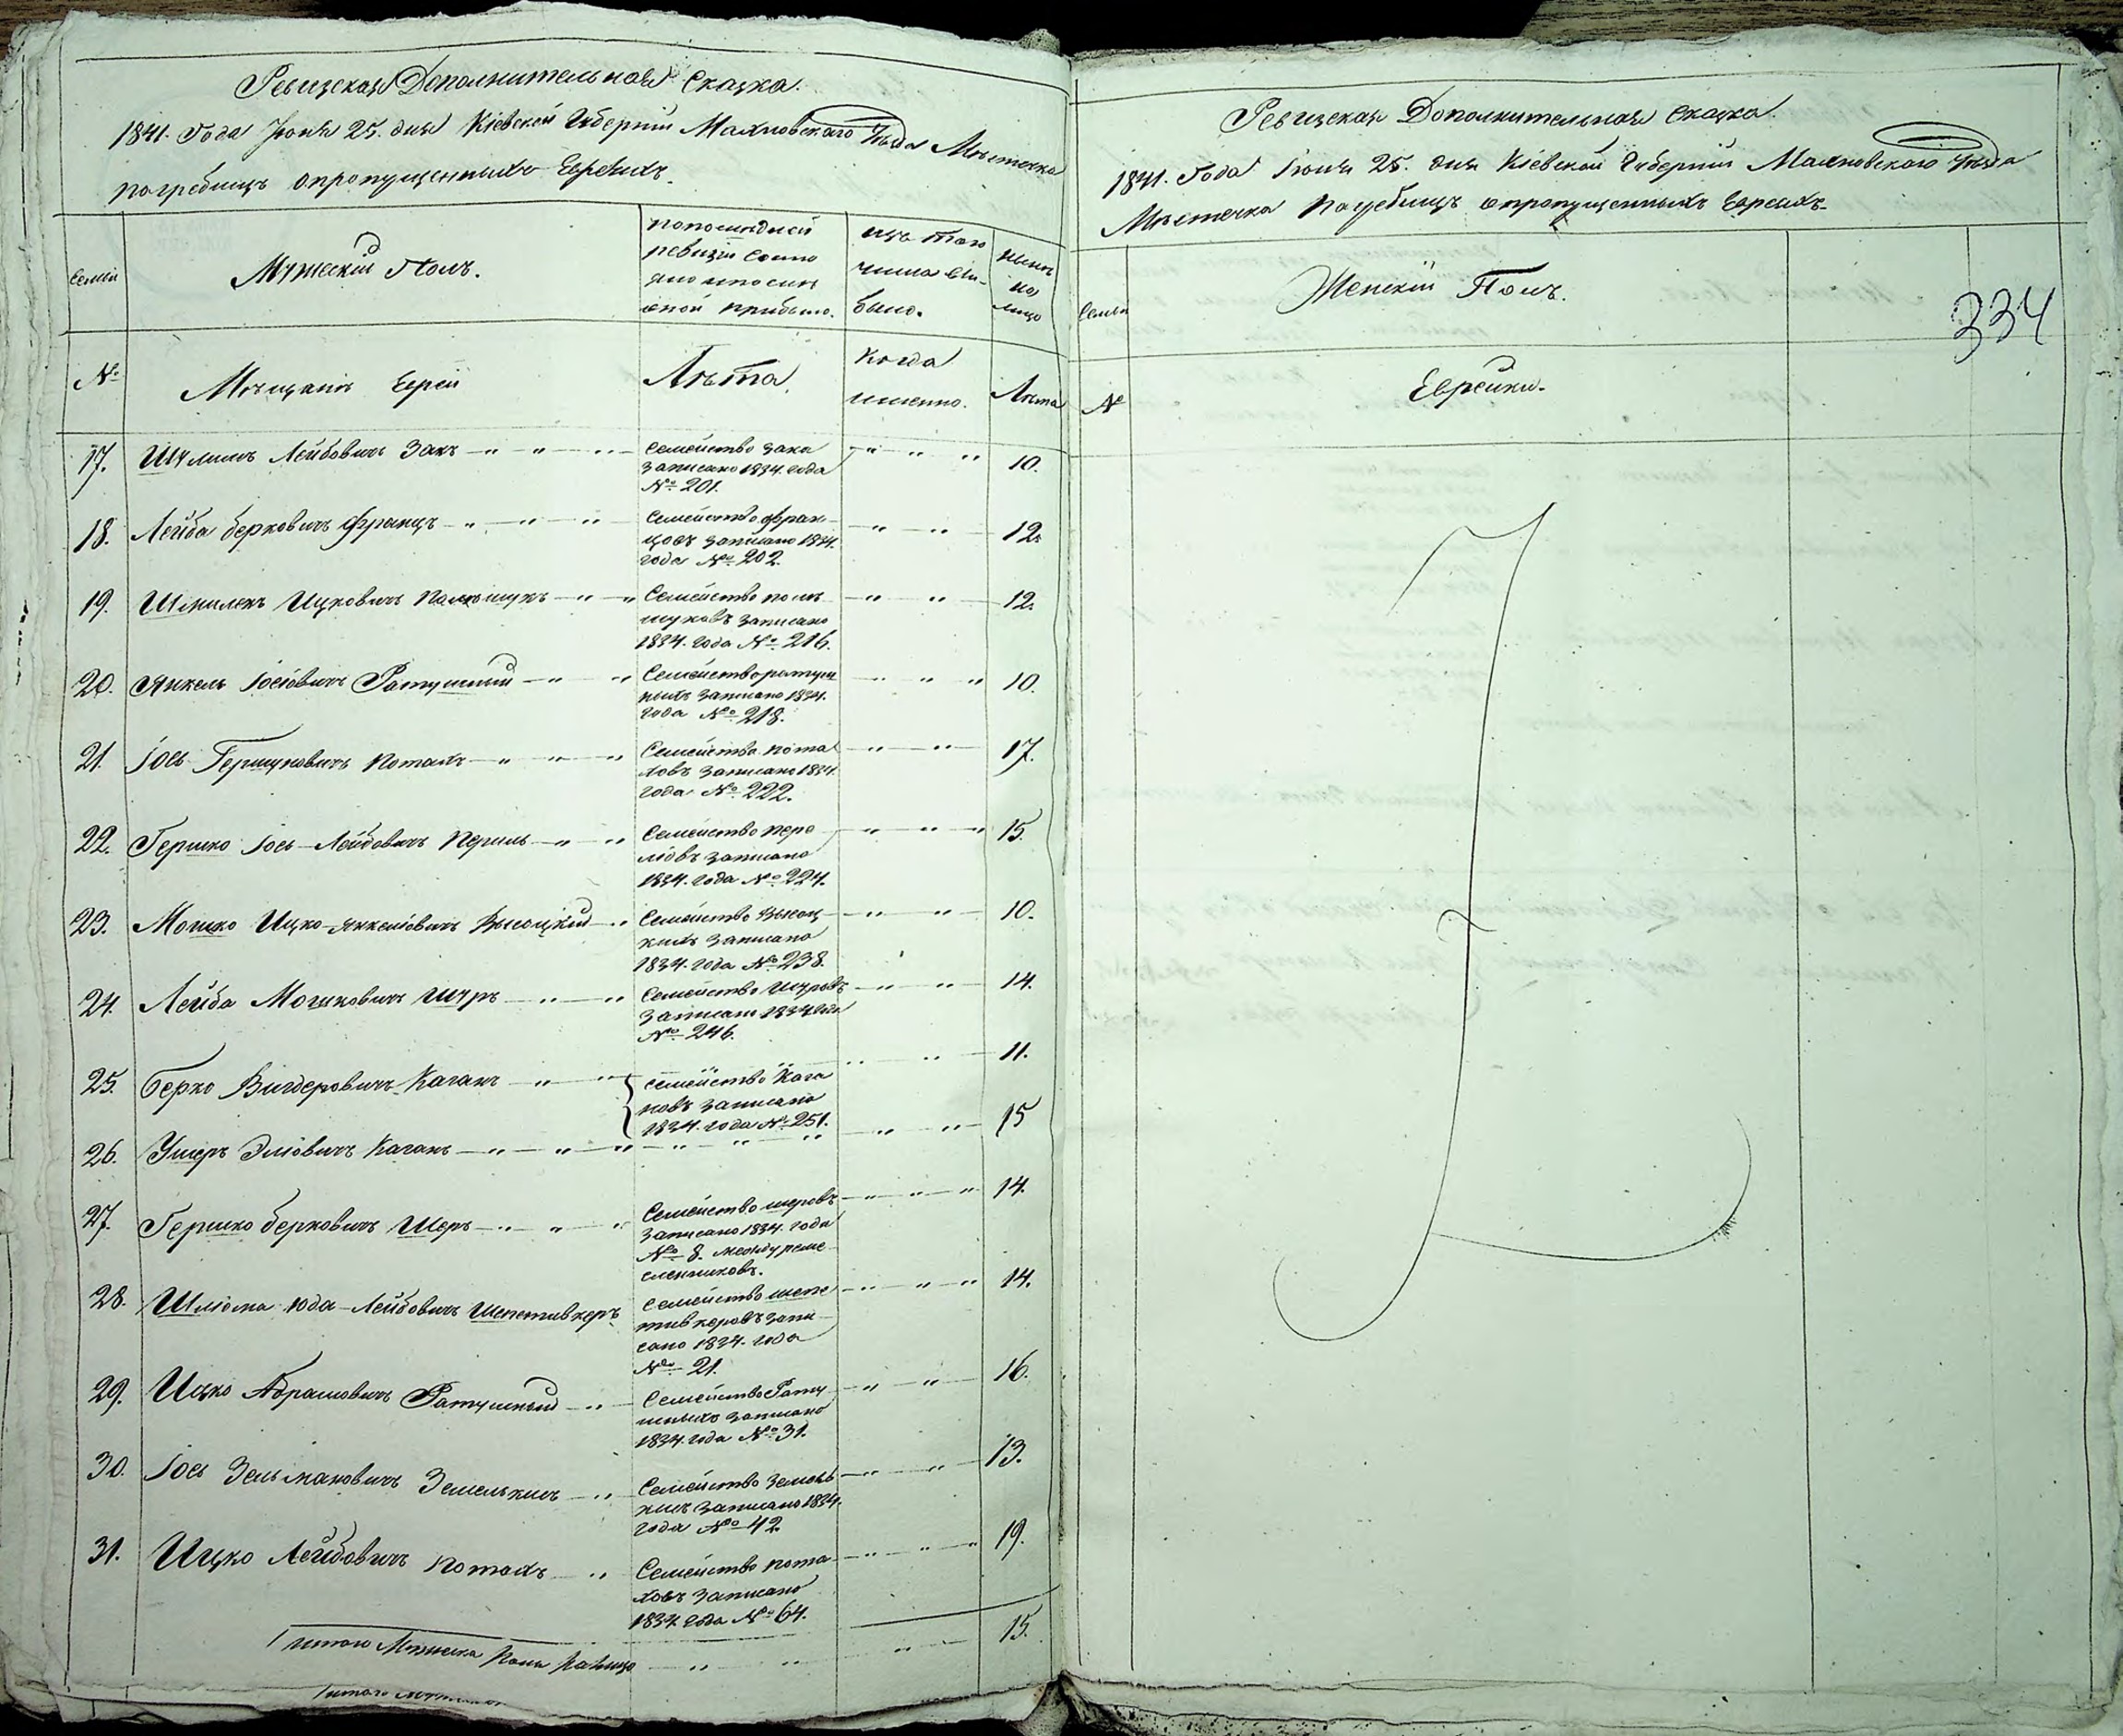 Ревизская Дополнительная Сказка.
1841. Года Іюня 25. дня Кіевской Губерніи Махновскаго Уѣзда Мѣстечка
погребищъ опропущенныхъ Евреяхъ.
Семьи
Мужескій Полъ.
попослѣдней
ревизіи состо
яло ипослѣ
оной прибыло.
изъ того
числа вы-
было.
нынѣ
на
лицо
№
Мѣщанѣ Евреи
Лѣта.
Когда
именно.
Лѣта
17. Шулимъ Лейбовичъ Закъ
Семейство Зака
Записано 1834. года
№ 201.
10.
18. Лейба Берковичъ Францъ
Семейство Фран-
цовъ Записано 1834.
года № 202.
12.
19. Шмилекъ Ицковичъ Полющукъ
Семейство полю
щуковъ Записано
1834. года № 216.
12.
20. Янкель Іосіовичъ Ратушный
Семейство ратуш
ныхъ Записано 1834.
года № 218.
10.
21. Іось Гершковичъ Потахъ
Семейство пота
ховъ Записано 1834.
года № 222.
17.
22. Гершко Іось-Лейбовичъ Периль
Семейство пере
ліовъ Записано
1834. года № 224.
15.
23. Мошко Ицко-Янкеліовичъ Высоцкій
Семейство Высоц
кихъ Записано
1834. года № 238.
10.
24. Лейба Мошковичъ Шуръ
Семейство Шуровъ
Записано 1834 года
№ 246.
14.
25. Берко Вигдеровичъ Каганъ
Семейство Кага
новъ Записано
1834. года № 251.
11.
26. Ушеръ Эліовичъ Каганъ
15
27. Гершко Берковичъ Шеръ
Семейство шеровъ
Записано 1834. года
№ 8. между реме
сленниковъ.
14.
28. Шліома Юда-Лейбовичъ Шепетивкеръ
Семейство шепе
тивкеровъ запи-
сано 1834. года
№ 21.
14.
29. Ицко Абрамовичъ Ратушный
Семейство Рату
шныхъ записано
1834. года № 31.
16.
30. Іось Зельмановичъ Земелькисъ
Семейство Земель
кисъ Записано 1834.
года № 42.
13.
31. Ицко Лейбовичъ Потахъ
Семейство пота
ховъ Записано
1834 года № 64.
19.
Итого Мужеска Пола Налицо
15.
Ревизская Дополнительная Сказка.
1841. Года Іюня 25. дня Кіевской Губерніи Махновскаго Уѣзда
Мѣстечка Погребищъ опропущенныхъ Евреяхъ.
Семьи
Женскій Полъ.
334
№
Еврейки.